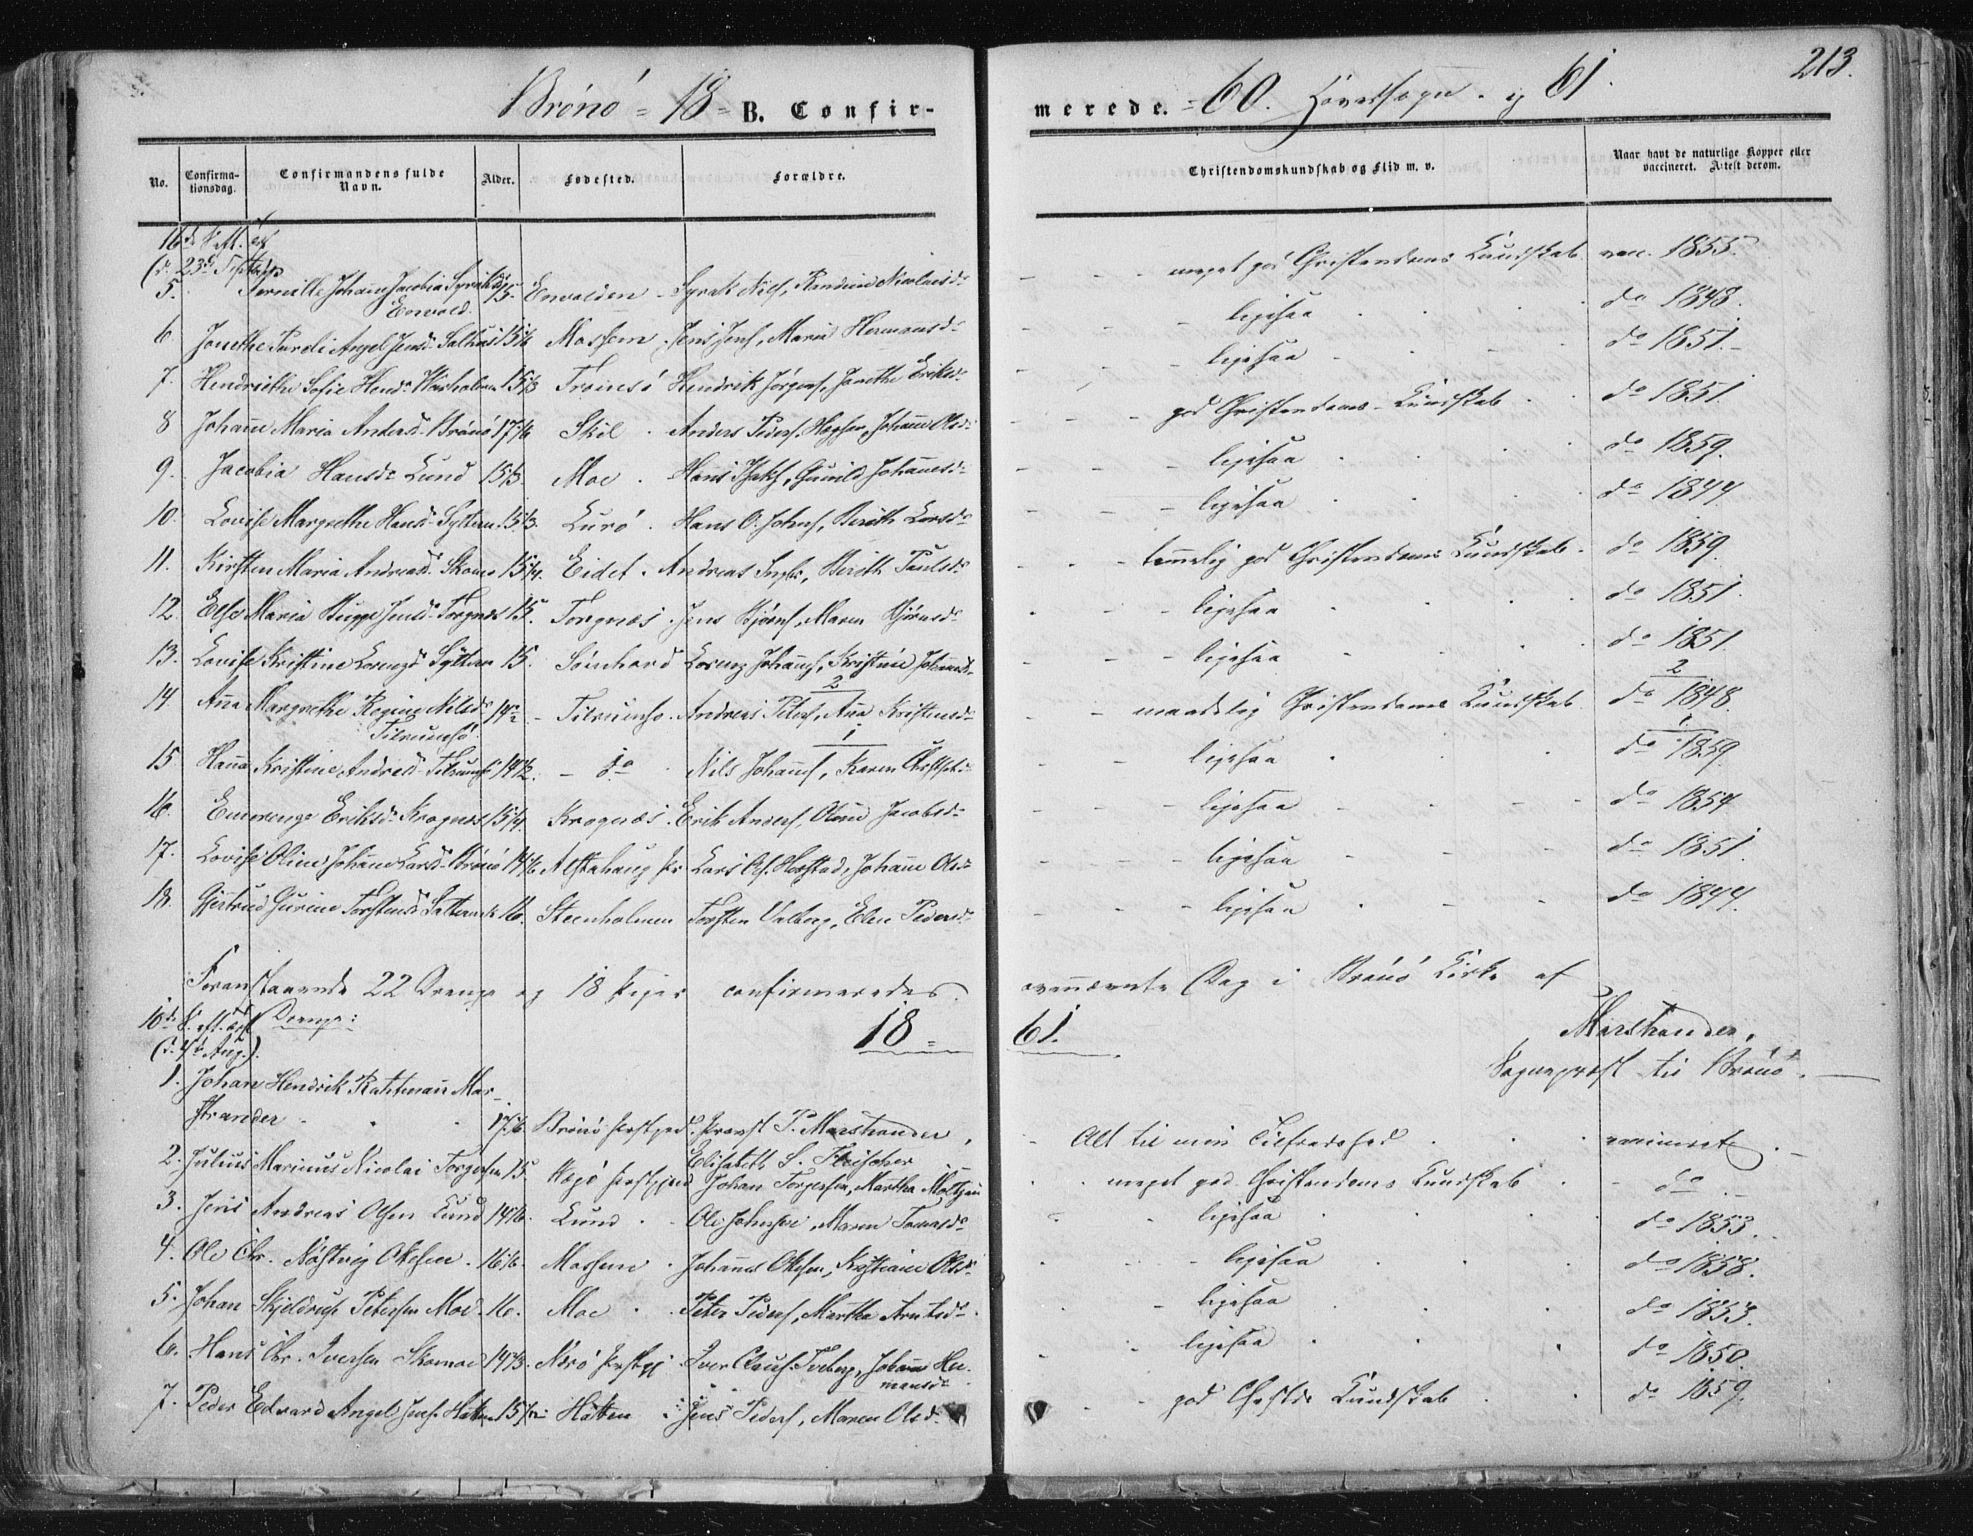 213.
Brönö = 18 = B. Confir-
merede. = 60. Hovedsogn. og 61.
No. Confirma-tionsdag. Confirmandens fulde Navn. Alder. Fødested. Forældre.
Christendomskundskab og Flid m. v. Naar havt de naturlige Kopper eller vaccineret. Attest derom.
16de S. (d. 23de Septbr)
5. Pernille Johanna Jacobia Syraksd. Envold 15. Envolden - Syrak Nils, Nicolaisd. meget god Christendoms Kundskab. vacc. 1855.
6. Jonethe Angel Jensd. 15 1/4 Mosheim. Jens Jens, Maria Hermansd. ligesaa do 1848.
7. Hendriethe Sofie Hend. 15 1/3 Tromsö Hendrik Jörgens, Janethe Eriksd. ligesaa do 1851.
8 Johanne Maria Andersd. Brönö 17 1/2 Skil. Anders Peders. Johanne Olsd. god Christendoms-Kundskab do 1851
9. Jacobia Hansd. Lund 15 1/3. Moe. Hans Gunild Johannesd. ligesaa do 1859.
10. Lovise Margrethe Hansd. 15 1/3. Lurö. Hans O. Johns, Bereth Larsd. ligesaa do 1844.
11. Kirsten Maria Andreasd. Skomo 15 1/4. Eidet. Andreas Bereth Paulsd. temmelig god Christendoms Kundskab. do 1859.
12 Else Maria Jensd. Torgnes 15. Torgnæs. Jens Bjørns, Maren Bjørnsd. ligesaa do 1851.
13. Lovise Kristine Lorenzd. 15. Lorenz Johans, Kristine Johannesd. ligesaa do 1851.
14. Anna Margrethe Regine Nilsd. Tilrumsö 14 1/2 - Tilrumsö. 2 Andreas Peters, Ana Kristensd. maadelig Christendoms Kundskab. 2 do 1848.
15. Hanna Kristine Andreasd. Tilrumsö 14 1/2. - do 1 Nils Johans, Karen ligesaa 1 do 1859
16. Emerenze Eriksd. Krognes 15 1/4. Krognæs. Erik Anders, Oline Jacobsd. ligesaa do 1854
17. Lovise Oline Johanna Larsd. Brönö 14 1/2 Alstahaug Lars Ols. Horstad, Johanne Olsd. ligesaa do 1851.
18. Gjertrud Gurine Torstensd. 16. Steenholmen Torsten Valberg, Elen Pedersd. ligesaa do 1844.
Foranstaaende 22 Drenge og 18 Piger confirmeredes ovennævnte Dag i Brönö Kirke af
Marstrander,
Sogneprest til Brönö.
18 = 61.
10de S. eft. (d. 4de Aug.). Drenge:
1. Johan Hendrik Rathman Marstrander 17 1/2. Brönö Prstgjed. Provst P. Marstrander, Elisabeth S. Fleischer Alt til min Tilfredshed vaccineret.
2. Julius Marinus Nicolai Torgersen 15. Vegö Prstgjed Johan Torgersen, Martha Moltzau meget god Christendoms Kundskab do
3. Jens Andreas Olsen Lund 14 1/2. Lund. Ole Johnsen, Maren ligesaa do 1853.
4. Ole Chr. Nöstvig Okesen. 16 1/2. Mosheim. Johannes Okesen, Kristiane Olsd. ligesaa do 1858.
5. Johan Skjeldrup Petersen Moe. 16. Moe. Peter Peders, Martha Arntsd. ligesaa do 1853.
6. Hans Chr. Iversen Skomoe 14 1/3. Nerö Prstgj. Iver Claus. Johanna Hermansd. ligesaa do 1850.
7. Peder Edvard Angel Jens. Hatten 15 Hatten. Jens Peders, Maren Olsd. god Christds Kundskab do 1859.